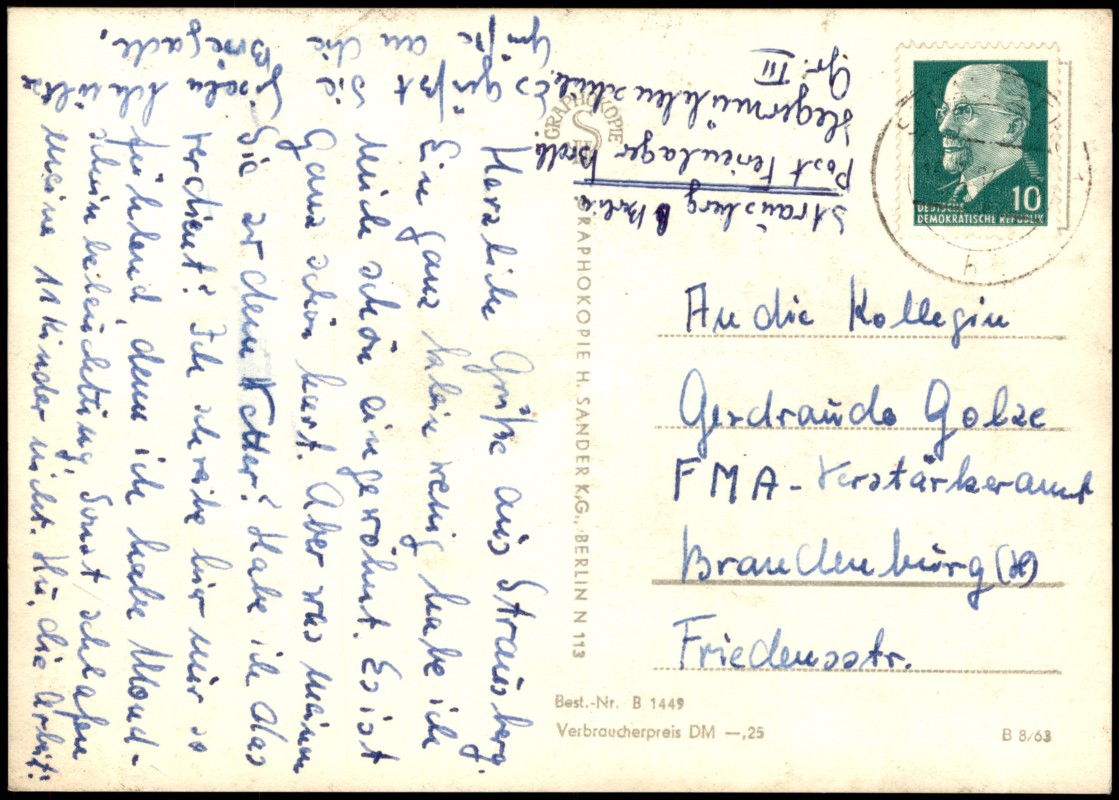 Strausberg b Berlin
Post Ferienlager
Hegermühlenschule
Gr. III
Herzliche Grüße aus Strausberg.
Ein ganz klein wenig habe ich
mich schon eingewöhnt. Es ist
Ganz schön hart. Aber was meinen
Sie zu dem Wetter? Habe ich das
verdient? Ich schreibe hier nur so
fühlend denn ich habe Mond-
scheinbeleuchtung. Sonst schlafen
meine 11 Kinder nicht. Hu, die Arbeit!
Es grüßt Sie
Grüße an die Brigade.
GRAPHOKOPIE
S
GRAPHOKOPIE H. SANDER K.G., BERLIN N 113
10
DEUTSCHE
DEMOKRATISCHE REPUBLIK
An die Kollegin
Gerdraude Golze
FMA - Verstärkeramt
Brandenburg (H)
Friedensstr.
Best.-Nr. B 1449
Verbraucherpreis DM —,25
B 8/63